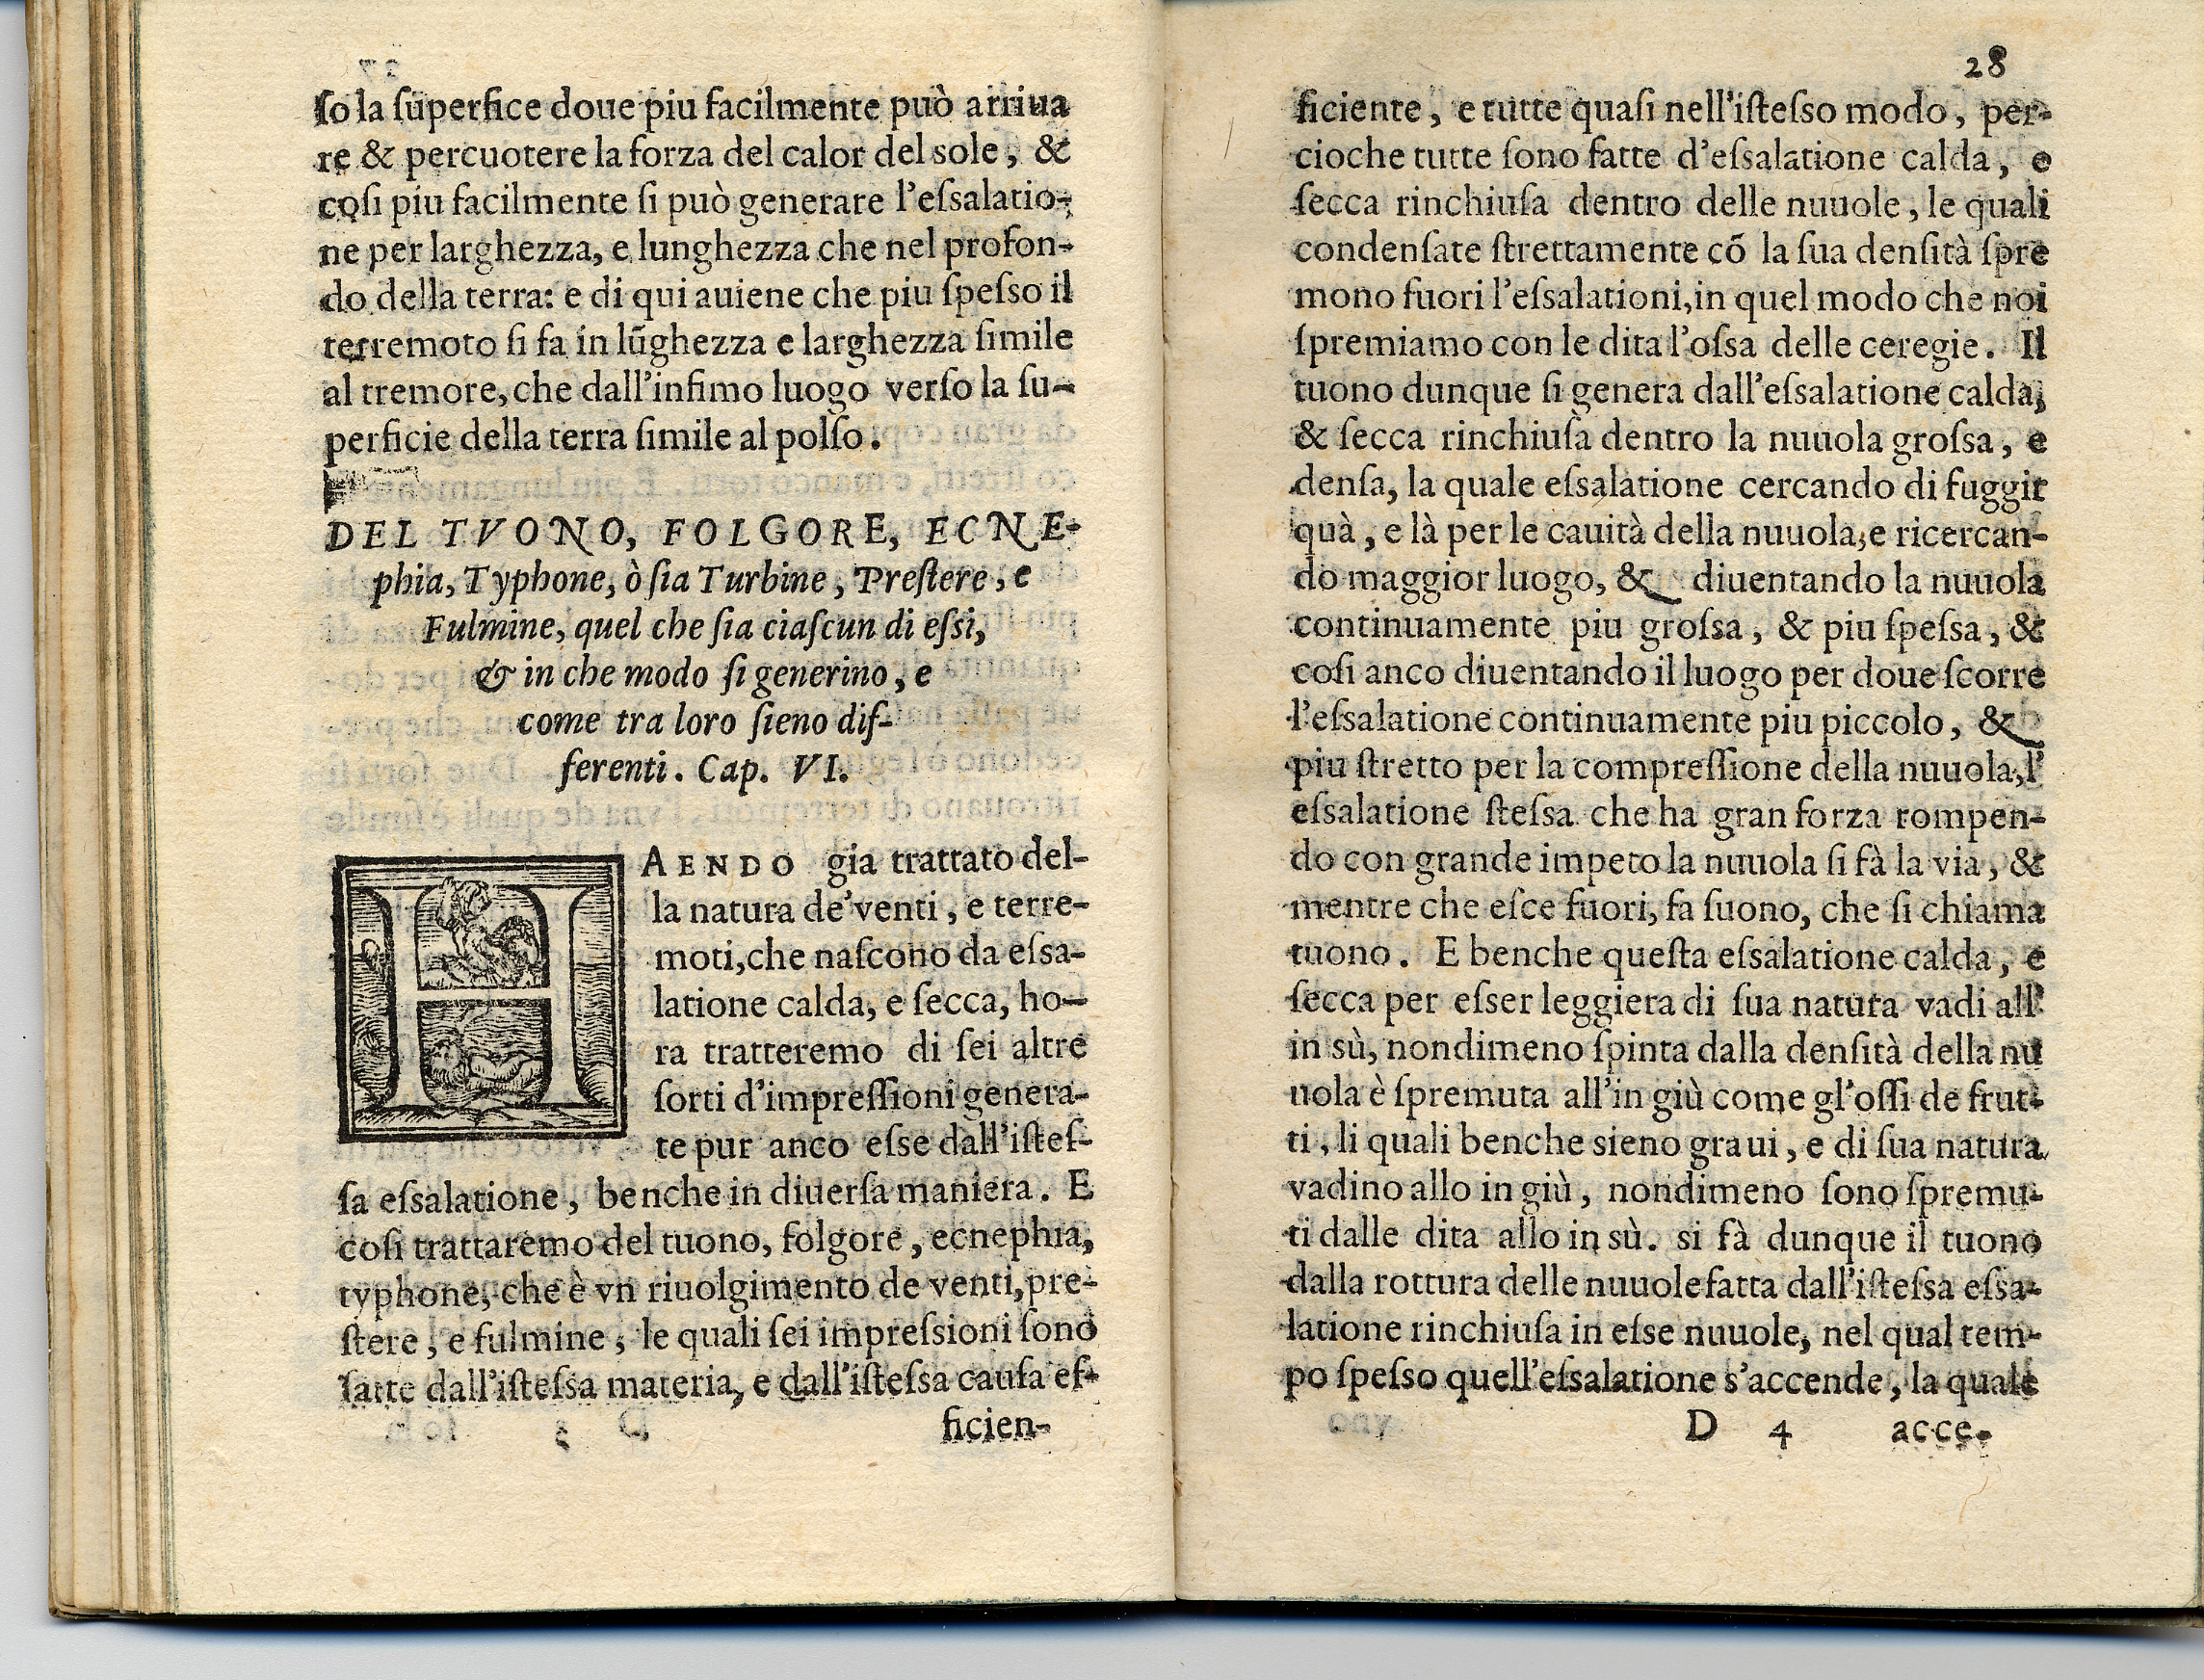 ſo la ſuperfice doue piu facilmente può arriua
re & percuotere la forza del calor del sole, &
coſi piu facilmente ſi può generare l'eſsalatio-
ne per larghezza, e lunghezza che nel profon-
do della terra: e di qui auiene che piu ſpeſso il
terremoto ſi fa in lũghezza e larghezza ſimile
al tremore, che dall'infimo luogo verſo la ſu-
perficie della terra ſimile al polſo.
DEL TVONO, FOLGORE, ECNE-
phia, Typhone, ò ſia Turbine, Preſtere, e
Fulmine, quel che ſia ciaſcun di eſsi,
& in che modo ſi generino, e
come tra loro ſieno dif-
ferenti. Cap. VI.
HAENDO gia trattato del-
la natura de'venti, e terre-
moti, che naſcono da eſsa-
latione calda, e ſecca, ho-
ra tratteremo di ſei altre
ſorti d'impreſſioni genera-
te pur anco eſse dall'iſteſ-
ſa eſsalatione, benche in diuerſa maniera. E
coſi trattaremo del tuono, folgore, ecnephia,
typhone, che è vn riuolgimento de venti, pre-
ſtere, e fulmine, le quali ſei impreſsioni ſono
fatte dall'iſteſsa materia, e dall'iſteſsa cauſa ef-
ficien-
28
ficiente, e tutte quaſi nell'iſteſso modo, per-
cioche tutte ſono fatte d'eſsalatione calda, e
ſecca rinchiuſa dentro delle nuuole, le quali
condenſate ſtrettamente cõ la ſua denſità ſpre
mono fuori l'eſsalationi, in quel modo che noi
ſpremiamo con le dita l'oſsa delle ceregie. Il
tuono dunque ſi genera dall'eſsalatione calda,
& ſecca rinchiuſa dentro la nuuola groſsa, e
denſa, la quale eſsalatione cercando di fuggir
quà, e là per le cauità della nuuola, e ricercan-
do maggior luogo, & diuentando la nuuola
continuamente piu groſsa, & piu ſpeſsa, &
coſi anco diuentando il luogo per doue ſcorre
l'eſsalatione continuamente piu piccolo, &
piu ſtretto per la compreſſione della nuuola, l'
eſsalatione ſteſsa che ha gran forza rompen-
do con grande impeto la nuuola ſi fà la via, &
mentre che eſce fuori, fa ſuono, che ſi chiama
tuono. E benche queſta eſsalatione calda, e
ſecca per eſser leggiera di ſua natura vadi all'
in sù, nondimeno ſpinta dalla denſità della nu
uola è ſpremuta all'in giù come gl'oſſi de frut-
ti, li quali benche sieno graui, e di ſua natura
vadino allo in giù, nondimeno ſono ſpremu-
ti dalle dita allo in sù. si fà dunque il tuono
dalla rottura delle nuuole fatta dall'iſteſsa eſsa-
latione rinchiuſa in eſse nuuole, nel qual tem-
po ſpeſso quell'eſsalatione s'accende, la quale
D 4 acce-